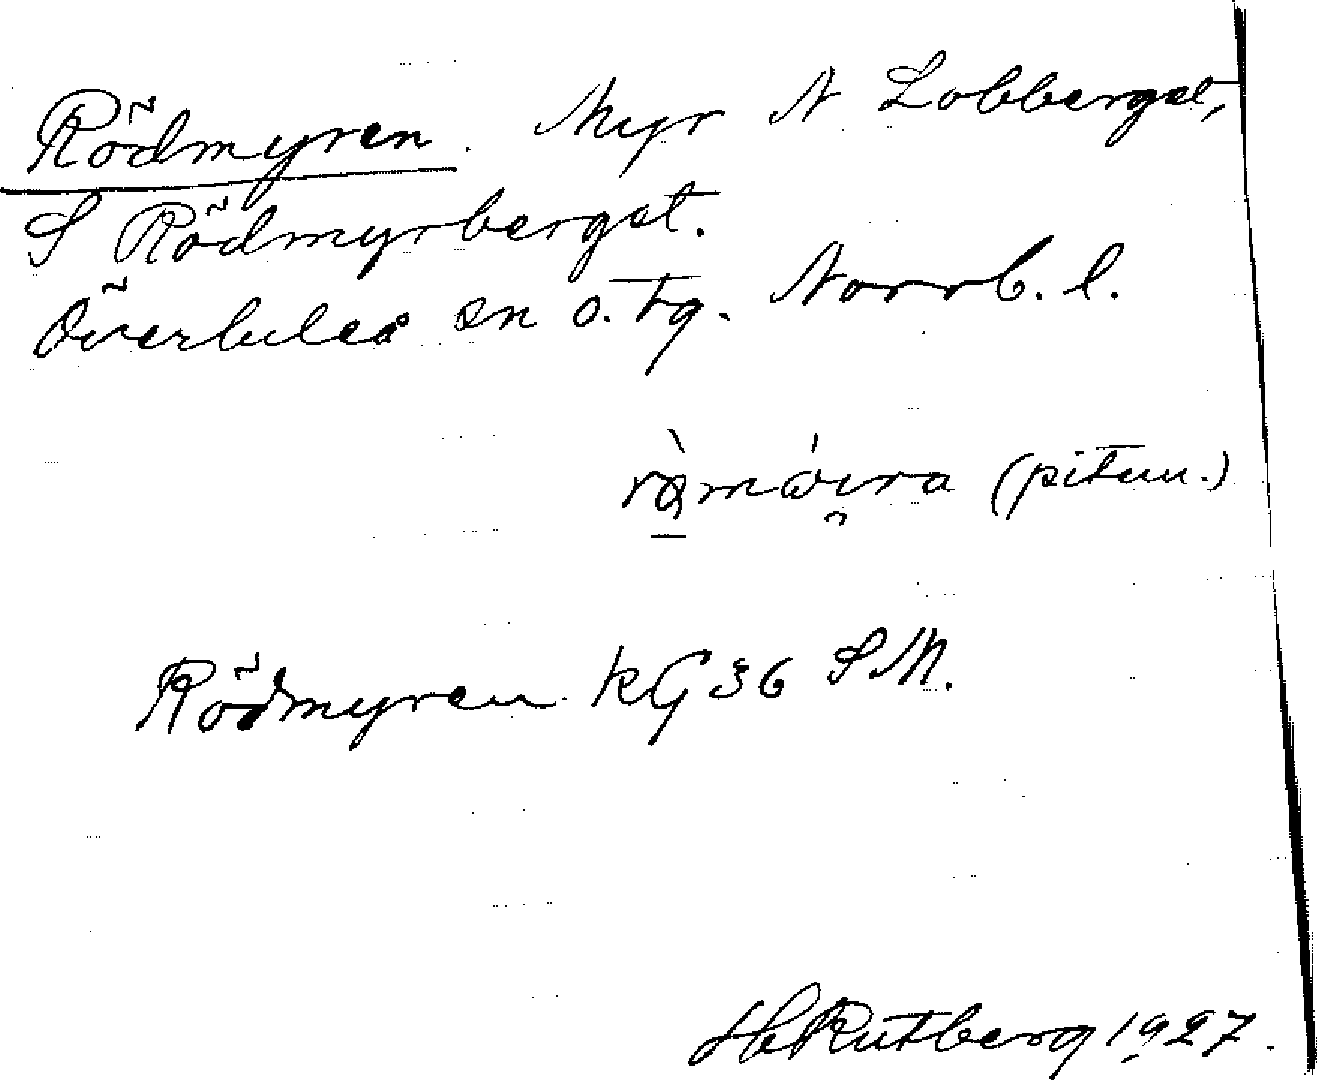 Rödmyren. Myr N Lobberget,
S Rödmyrberget.
Överlulea sn o. tg. Norrb. l.
(pitem.)
Rödmyren KG 36 SM.
H Rutberg 1927.